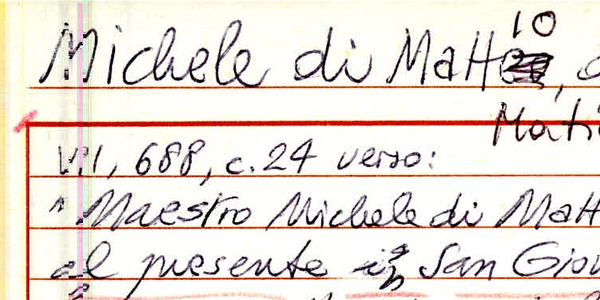 Michele di Matteio,
Mati
VII, 688, c. 24 verso:
"Maestro Michele di Matt
al presente in San Giov